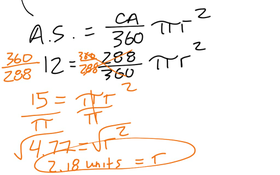 A.S. = CA/360 πr²
360/288 12 = 360/288 288/360 πr²
15/π = πr²/π
√4.77 = √r²
2.18 units = r